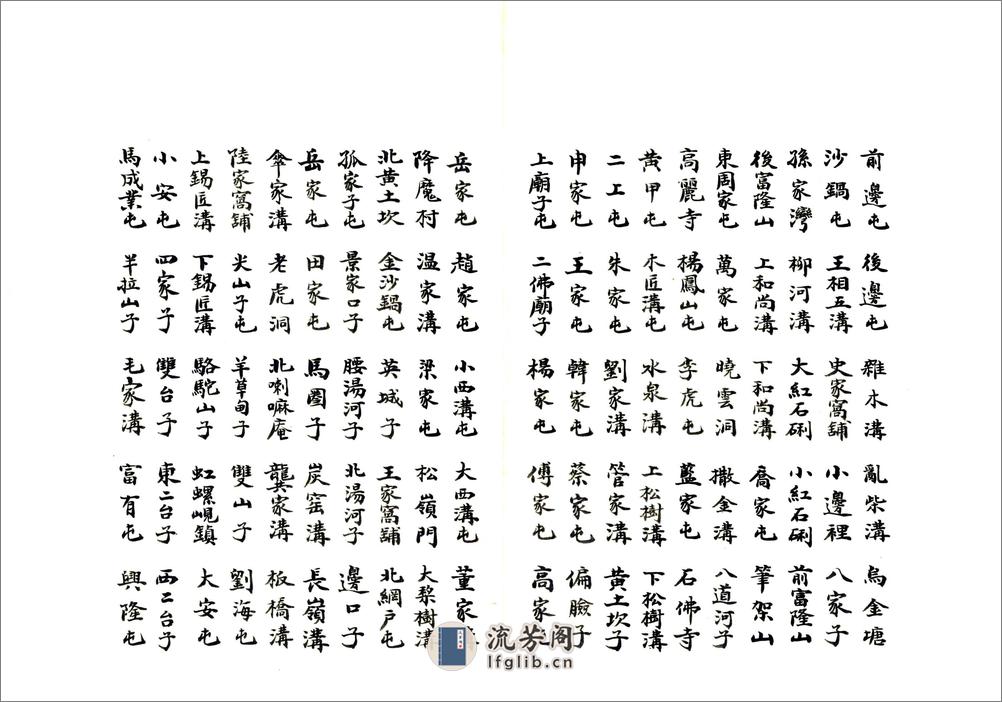 前邊屯 後邊屯 雜木溝 亂柴溝 烏金塘
沙鍋屯 王相五溝 史家窩舖 小邊裡 八家子
孫家灣 柳河溝 大紅石硎 小紅石硎 前富隆山
後富隆山 上和尚溝 下和尚溝 喬家屯 筆架山
東周家屯 萬家屯 曉雲洞 撒金溝 八道河子
高麗寺 楊鳳山屯 李虎屯 藍家屯 石佛寺
黄甲屯 木匠溝屯 水泉溝 上松樹溝 下松樹溝
二上屯 朱家屯 劉家溝 管家溝 黄土坎子
申家屯 王家屯 韓家屯 蔡家屯 偏臉子
上廟子屯 二佛廟子 楊家屯 傅家屯 高家
岳家屯 趙家屯 小西溝屯 大西溝屯 董家
降魔村 温家溝 梁家屯 松嶺門 大梨樹溝
北黄土坎 金沙鍋屯 英城子 王家窩舖 北網户屯
孤家子屯 景家口子 腰湯河子 北湯河子 邊口子
岳家屯 田家屯 馬圈子 炭窑溝 長嶺溝
傘家溝 老虎洞 北喇嘛庵 龔家溝 板橋溝
陸家窩舖 尖山子屯 羊草甸子 雙山子 劉海屯
上錫匠溝 下錫匠溝 駱駝山子 虹螺峴鎮 大安屯
小安屯 四家子 雙台子 東二台子 西二台子
馬成業屯 半拉山子 毛家溝 富有屯 興隆屯
流芳阁
lfglib.cn